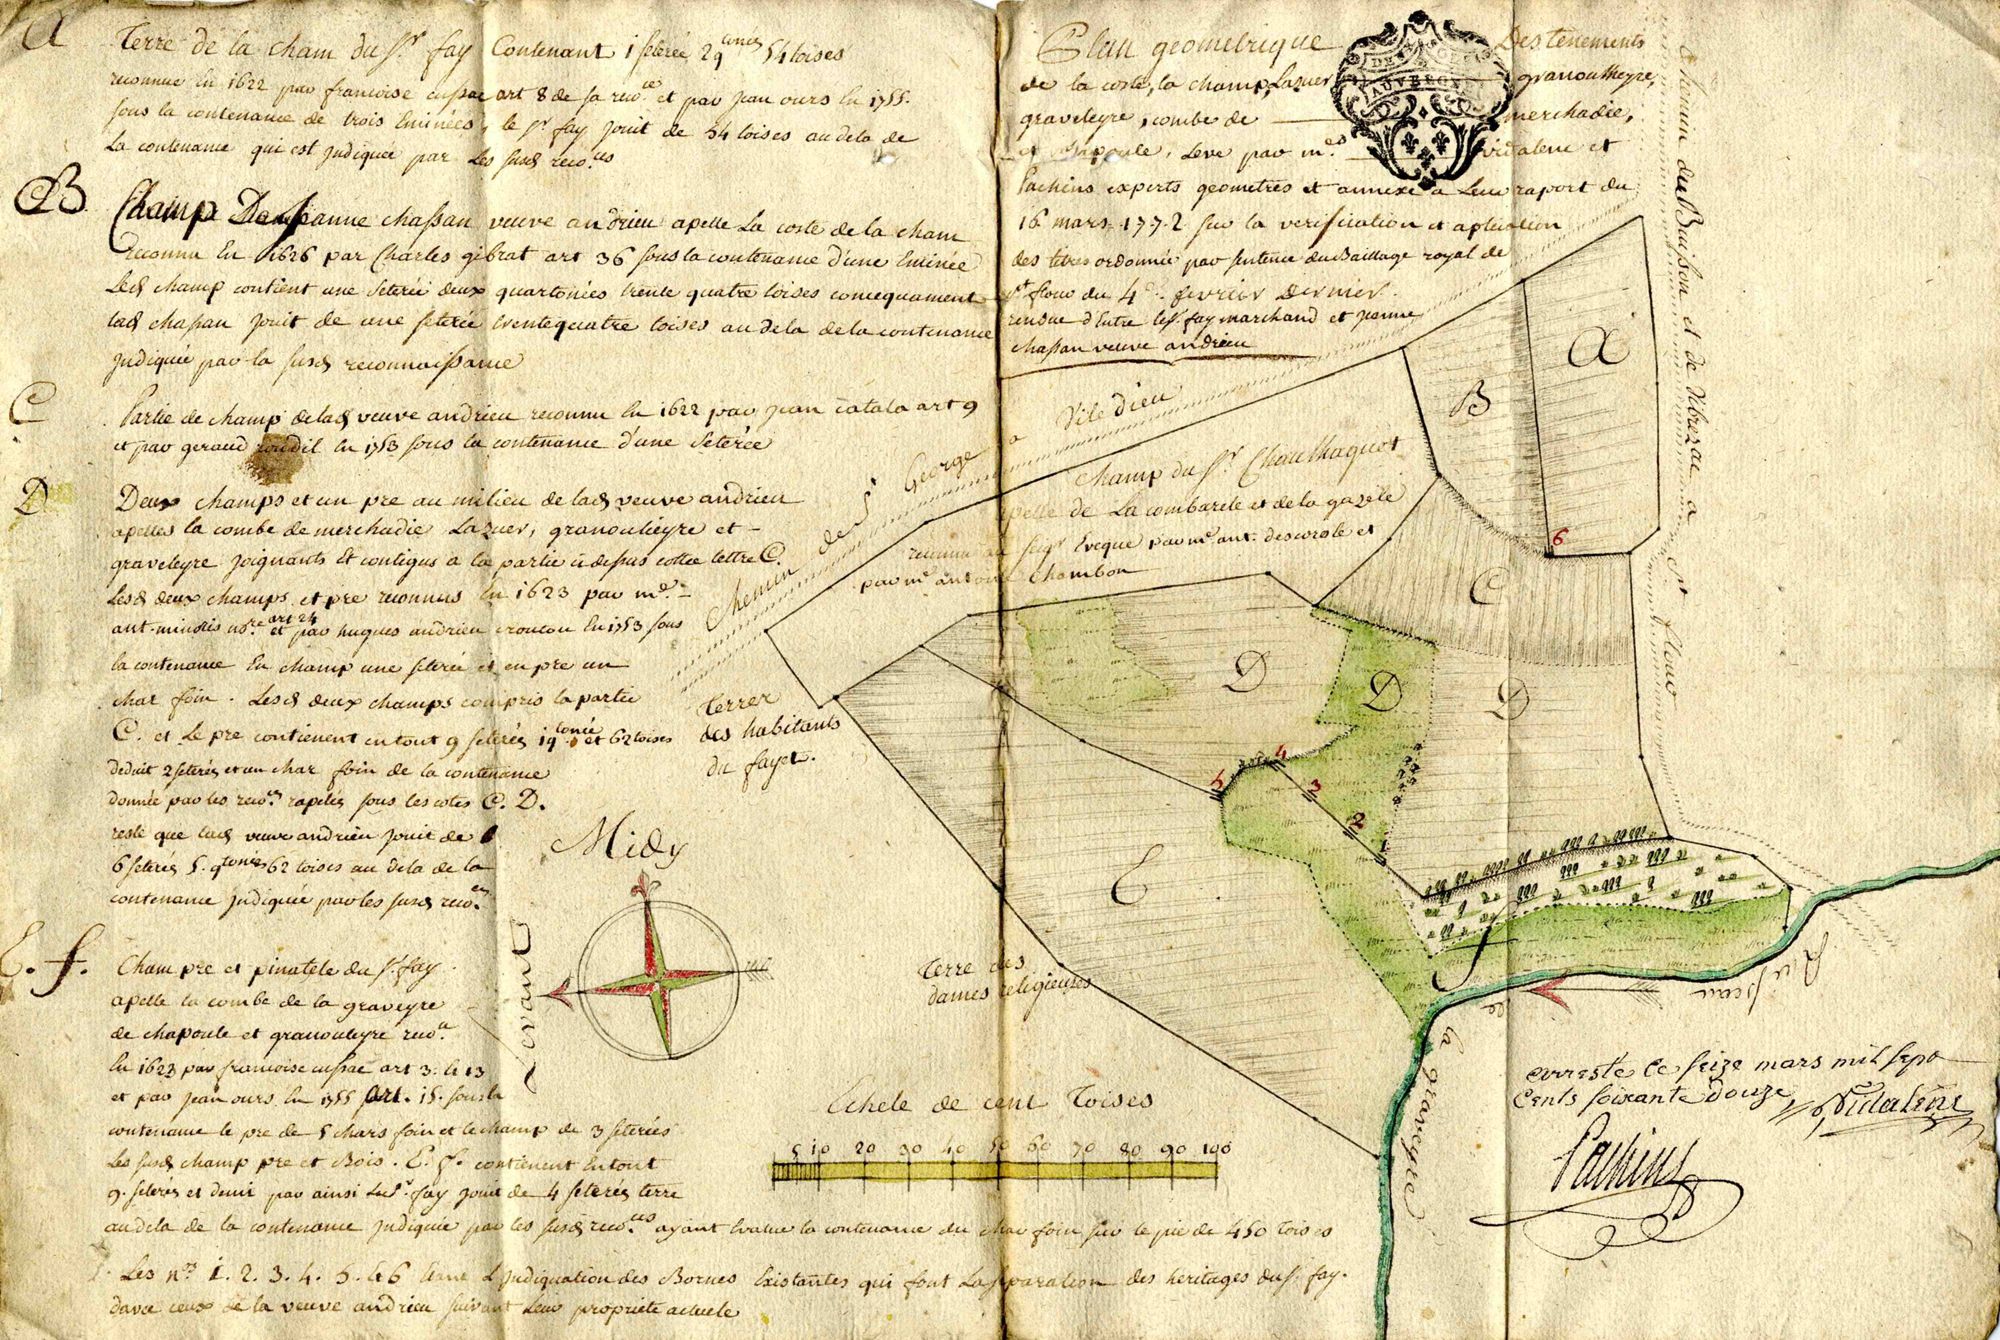 A
Terre de la cham du Sr. fay Contenant 1 seterée 2 qtonées 54 toises
reconnue en 1622 par francoise cussac art 8 de sa reco.ce et par jean ours en 1755.
sous la contenance de trois Eminées, le sr fay jouit de 54 toises au dela de
la contenance qui est judiquée par les susd reco.ces
B
Champ De jeanne chassan veuve andrieu apelle La coste de la cham
reconnu En 1626 par Charles gibrat art 36 sous la contenance d'une Eminée
Led champ contient une seterée deux quartonées trente quatre toises consequament
lad chassan jouit de une seterée trentequatre toises au dela de la contenance
judiquée par la susd reconnoissance
C
Partie de champ de lad veuve andrieu reconnu En 1622 par jean catala art 9
et par geraud roudil En 1753 sous la contenance d'une Seterée
D
Deux champs et un pre au milieu de lad veuve andrieu
apelles la combe de merchadie Lazuer, granouleyre et -
graveleyre joignants et contigus a la partie ci dessus cottee lettre C.
Lesd deux champs et pre reconnus En 1623 par me. -
ant. minotis nore. art 24 et par hugues andrieu croutou En 1753 sous
la contenance En champ une seterée et en pre un
char foin. Lesd deux champs compris la partie
C. et Le pre contienent en tout 9 seterés 1 qtonée et 62 toises
deduit 2 seterés et un char foin de la contenance
donnée par les reco.ces rapelés sous les cotes C. D.
reste que lad veuve andrieu jouit de
6 seterés 5. qtonées 62 toises au dela de la
contenance judiquée par les susd reco.ces
E. f.
Cham pre et pinatele du Sr. fay
apelle la combe de la graveyre
de chapoule et granouleyre reco.u
En 1623 par francoise cussac art 3. et 13
et par jean ours En 1755 art. 15. sous la
contenance le pre de 5 chars foin et le champ de 3 seterées
Les susd champ pre et Bois. E. f. contienent En tout
9. seterés et demi par ainsi Led sr. fay jouit de 4 seterés terre
au dela de la contenance judiquée par les susd reco.ces ayant Evalue la contenance du char foin sur le pie de 450 toises
Les nos 1. 2. 3. 4. 5. et 6 Etant L'judiquation des Bornes Existantes qui font La separation des heritages du sr. fay.
davec ceux de la veuve andrieu suivant Leur propriete actuele
Plan geometrique Des tenements
de la coste, la champ, Lazuer granoulheyre,
graveleyre, combe de merchadie,
et chapoule, Levé par mes vidalenc et
Pachins experts geometres et annexe a Leur raport du
16 mars 1772 sur la verification et aplication
des titres ordonnée par sentence du Baillage royal de
st flour du 4e. fevrier Dernier.
rendue d'Entre le sr. fay marchand et jeanne
chassan veuve andrieu
AUVERGNE
Chemin du Buisson et de Vibrezac a st flour
Chemin de st George a Vile dieu
Champ du Sr Chaulhaguet
apelle de La combarele et de la gazele
reconnu au seigr Eveque par me. ant. descorole et
par me antoine chambon
A
B
C
D
D
D
E
f
6
5
4
3
2
1
Terrer
des habitants
du fayet.
Terre des
dames religieuses
Midy
Levant
Ruisseau de la graveyre
Echele de cent Toises
5 10 20 30 40 50 60 70 80 90 100
arresté ce seize mars mil sept
cents soixante douze
Vidalenc
Pachins